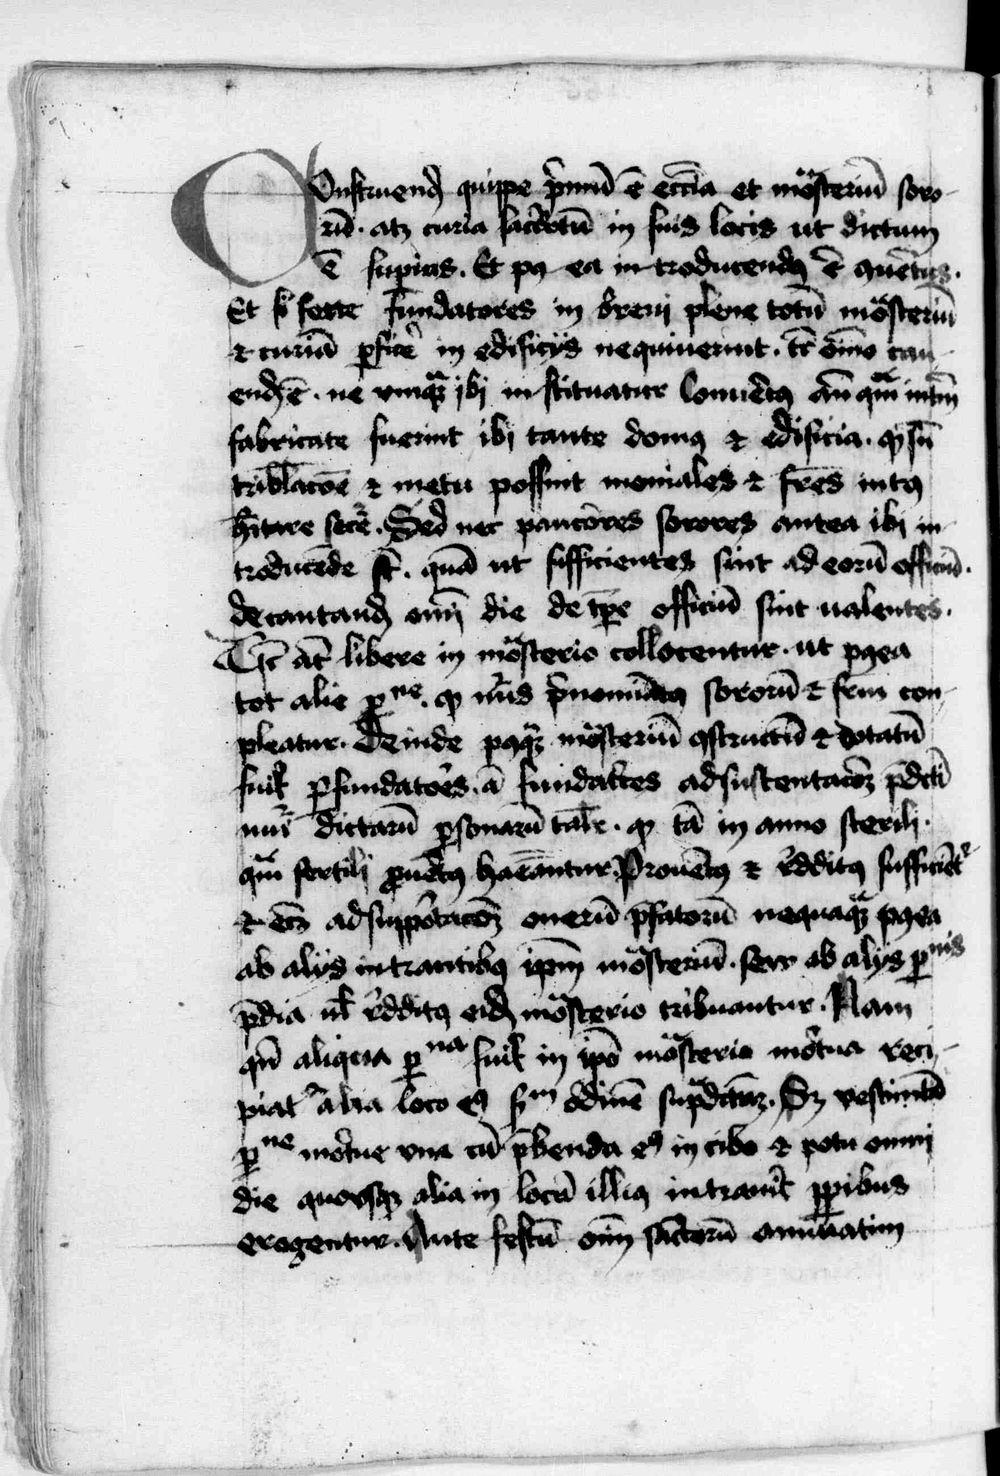 Construend quippe primu e eccia et mosteriu soro-
ru. atq curia sacdotu in suis locis ut dictum
e superius. Et pq ea introducendq e conuetus.
Et si forte fundatores in breui plene totu mosteriu
& curia pfice in edificijs nequiuerint. tn omo cau-
end e. ne unqua ibi instituatur conuetq an qua inibi
fabricate fuerint ibi tante domq & edificia. q sn
tribulacoe & metu possint moniales & fres intq
hitare secure. Sed nec paucores sorores antea ibi in-
troducede st. qua ut sufficientes sint ad eoru officiu.
decantand omi die de tpe officiu sint ualentes.
Hec at libere in mosterio collocentur. ut pqea
tot alie psone. q nus prenomiatq sororu & frm con-
pleatur. Deinde pqq mosteriu constructu & dotatu
fuit p fundatores. a fundatrices ad sustentacoem pdcti
nui dictaru psonaru talr. q ta in anno sterili.
qua fertili puetq habeantur. Prouetq & redditq sufficiet
& etia ad supportacoem oneru pfatoru nequaqua pqea
ab alijs intrantibq ipm mosteriu. seu ab alijs psonis
pdia ul redditq eid mosterio tribuantur. Nam
qn aliqua psona fuit in ipo mosterio mortua reci-
piat alia loco eq scdm ordine supradictum. Sz vestimta
psone mortue una cu pbenda eq in cibo & potu omni
die quousq alia in locu illiq intrauit pauperibus
erogentur. Ante festu oim sactoru annuatim